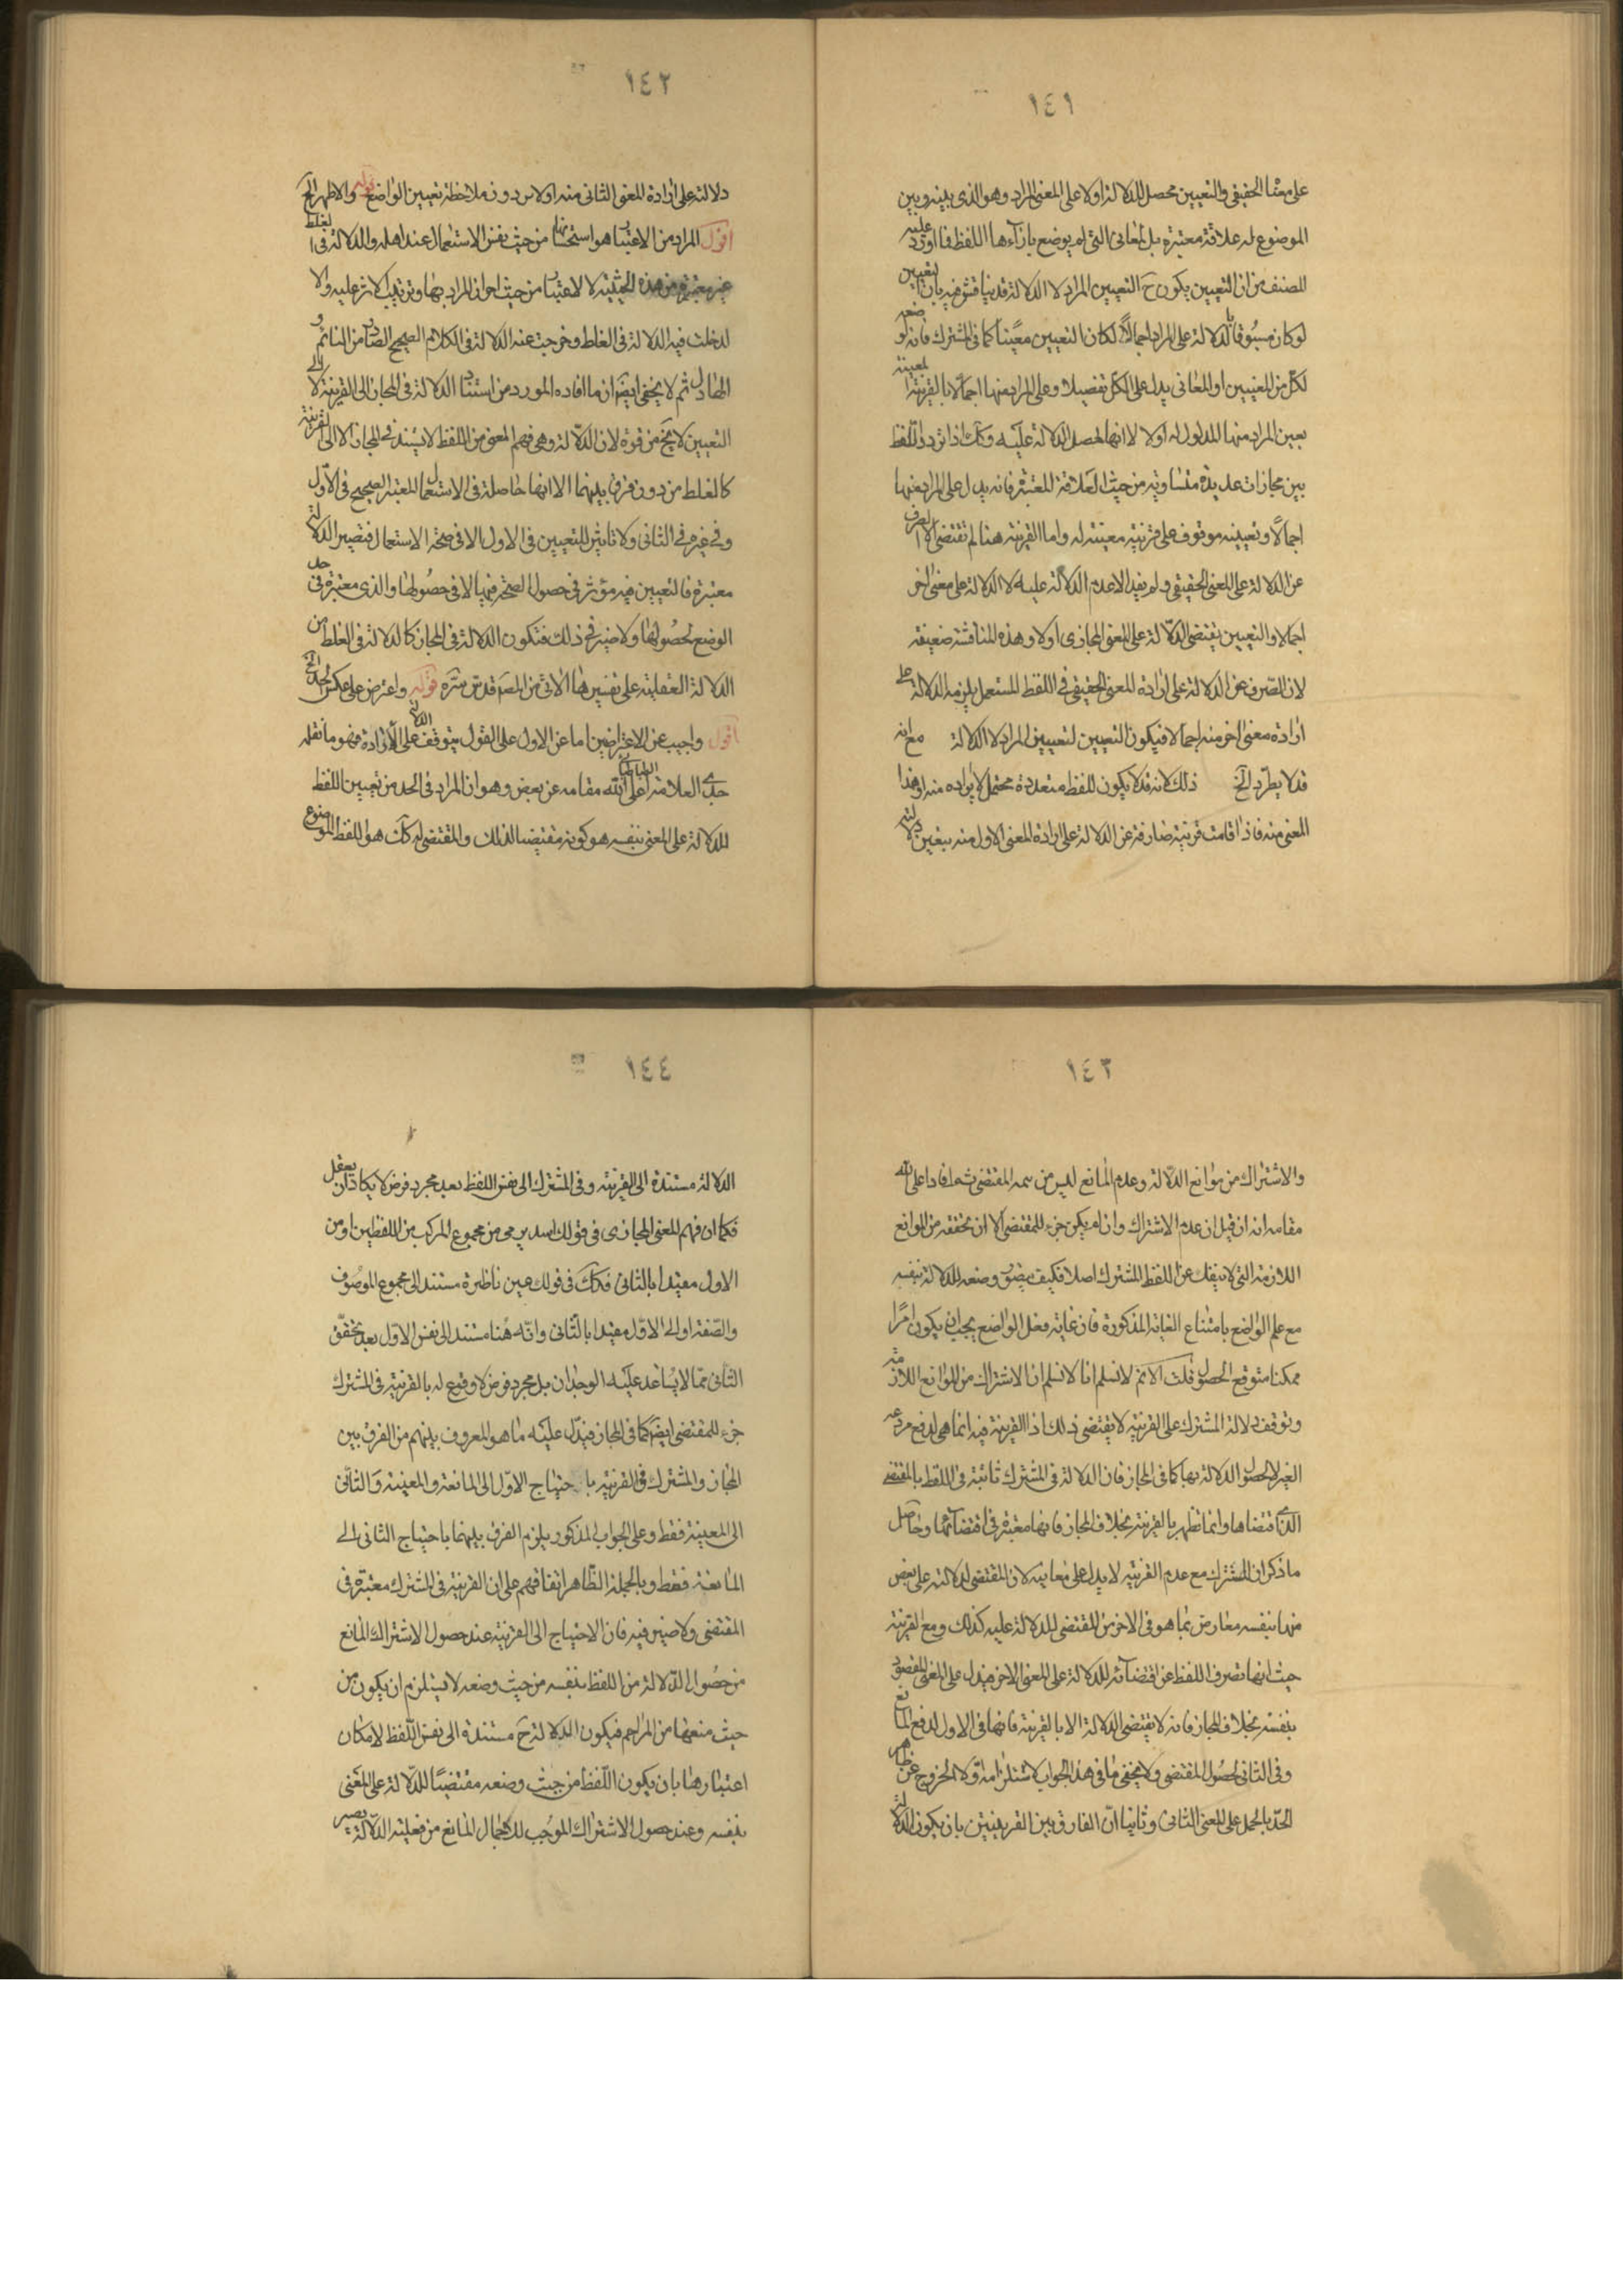 ١٤١
على معناه الحقيقي والتعيين محصل للدلالة اولا على المعنى المراد وهو الذي بينه وبين
الموضوع له علاقة معتبرة بل المعاني التي لم يوضع بازآءها اللفظ فما اورد عليه
المصنف من ان التعيين يكون ح التعيين المراد لا الدلالة قد يناقش فيه بان التعيين
لو كان مسبوقا بالدلالة على المراد اجمالاً لكان التعيين معيّناً كما في المشترك فانه لو وضعه
لكل من المعنيين او المعاني يدل على الكل تفصيلا وعلى المراد منها اجمالا بالقرينة المعينة
يعين المراد منها المدلول له اولا لا انها تحصل الدلالة عليه وكك اذا تردد اللفظ
بين مجازات عديدة متساوية من حيث العلاقة المعتبرة فانه يدل على المراد منها
اجمالاً وتعيينه موقوف على قرينة معينة له واما القرينة هنا لم تقتض الا الصرف
عن الدلالة على المعنى الحقيقي ولم يفد الا عدم الدلالة عليه لا الدلالة على معنى اخر
اجمالا والتعيين يقتضي الدّلالة على المعنى المجازي اولا وهذه المناقشة ضعيفة
لان الصّرف عن الدلالة على ارادة المعنى الحقيقي في اللفظ المستعمل يلزمه الدلالة على
ارادة معنى اخر منه اجمالا فيكون التعيين لتعيين المراد لا الدلالة مع انه
قد لا يطّرد الخ ذلك لانه قد لا يكون للفظ متعددة محتمل لايراده منه او هذا
المعنى منه فاذا قامت قرينة صارفة عن الدلالة على ارادة المعنى الاول منه يتعين دلالته
١٤٢
دلالته على ارادة المعنى الثاني منه اولا من دون ملاحظة تعيين الواضع قوله والاظهر الخ
اقول المراد من الاعتبار هو استحسانها من حيث نفس الاستعمال عند اهله والدلالة في الغلط
غير معتبرة من هذه الحيثية لا الاعتبار من حيث احوال المراد بها وترتيب الاثر عليه والا
لدخلت فيه الدلالة في الغلط وخرجت عنه الدلالة في الكلام الصحيح الصادر من النائم و
الهازل ثم لا يخفى ايضا ان ما افاده المورد من استناد الدلالة في المجاز الى القرينة لا الى
التعيين لا يخ من قوة لان الدلالة وهي فهم المعنى من اللفظ لا يستند في المجاز الا الى القرينة
كالغلط من دون فرق بينهما الا انها حاصلة في الاستعمال المعتبر الصحيح في الاوّل
وفي غيره في الثاني ولا تاثير للتعيين في الاول الا في صحة الاستعمال فتصير الدلالة
معتبرة فالتعيين فيه مؤثر في حصول الصحة فيها لا في حصولها والذي معتبرة في حد
الوضع حصولها ولا ضير في ذلك فتكون الدلالة في المجاز كالدلالة في الغلط من
الدلالة العقلية على تفسيرها الاتي من المصـ قدس سره قوله واعترض على عكس الحد الخ
اقول واجيب عن الاعتراضين اما عن الاول على القول بتوقف الدلالة على الارادة فهو ما نقله
جدي العلامة الطباطبائي اعلى الله مقامه عن بعض وهو ان المراد في الحد من تعيين اللفظ
للدلالة على المعنى بنفسه هو كونه مقتضيا لذلك والمقتضي له كك هو اللفظ الموضوع
١٤٣
والاشتراك من موانع الدّلالة وعدم المانع ليس من سمة المقتضي ثم افاد اعلى الله
مقامه انه ان قيل ان عدم الاشتراك وان لم يكن جزء للمقتضي الا ان تحققه من الموانع
اللازمة التي لا ينفك عن اللفظ المشترك اصلا فكيف يتصور وضعه للدلالة بنفسه
مع علم الواضع بامتناع الغاية المذكورة فان غاية فعل الواضع يجب ان يكون امرًا
ممكنا متوقع الحصول قلت لانسلم انا لا نسلم ان الاشتراك من الموانع اللازمة
وتوقف دلالة المشترك على القرينة لا يقتضي ذلك اذ القرينة فيه انما هي لدفع مزاحمة
الغير لا لحصول الدلالة بها كما في المجاز فان الدلالة في المشترك ثابتة في اللفظ بالمقتضي
الذي اقتضاها وانما تظهر بالقرينة بخلاف المجاز فانها معتبرة في اقتضآئها وحاصل
ما ذكر ان المشترك مع عدم القرينة لا يدل على معانيه لان المقتضي لدلالته على بعض
منها بنفسه معارض بما هو في الاخر من المقتضي للدلالة عليه كذلك ومع القرينة
حيث انها تصرف اللفظ عن اقتضآئه للدلالة على المعنى الاخر فيدل على المعنى المقصود
بنفسه بخلاف المجاز فانه لا يقتضي الدلالة الا بالقرينة فانها في الاول لدفع المانع
وفي الثاني لحصول المقتضي ولا يخفى ما في هذا الجواب لاستلزامه اولا الخروج عن ظاهر
الحدّ بالحمل على المعنى الثاني وثانيا ان الفارق بين القرينتين بان يكون الدلالة
١٤٤
الدلالة مستندة الى القرينة وفي المشترك الى نفس اللفظ بعيد مجرد فرض لا يكاد ان يعقل
فكما ان فهم المعنى المجازي في قولك اسد يرمي من مجموع المركب من اللفظين او من
الاول مقيدا بالثاني فكذلك في قولك عين ناظرة مستند الى مجموع الموصوف
والصّفة او الى الاوّل مقيدا بالثّاني وانّه هُنا مستند الى نفس الاوّل بعد تحقّق
الثّاني ممّا لا يُساعد عليه الوجدان بل مجرد فرض لا وقوع له بالقرينة في المشترك
جزء للمقتضي ايضا كما في المجاز فيدلّ عليه ما هو المعروف بينهم من الفرق بين
المجاز والمشترك في القرينة باحتياج الاوّل الى المانعة والمعينة والثّاني
الى المعينة فقط وعلى الجواب المذكور يلزم الفرق بينهما باحتياج الثاني الى
المانعة فقط وبالجملة الظّاهر اتفاقهم على ان القرينة في المشترك معتبرة في
المقتضي ولا ضير فيه فان الاحتياج الى القرينة عند حصول الاشتراك المانع
من حصُول الدّلالة من اللفظ بنفسه من حيث وضعه لا يستلزم ان يكون من
حيث منعها من المزاحم فيكون الدلالة ح مستندة الى نفس اللّفظ لامكان
اعتبارها بان يكون اللّفظ من حيث وضعه مقتضيًا للدّلالة على المعنى
بنفسه وعند حصول الاشتراك الموجب للاجمال المانع من فعلية الدّلالة يصير